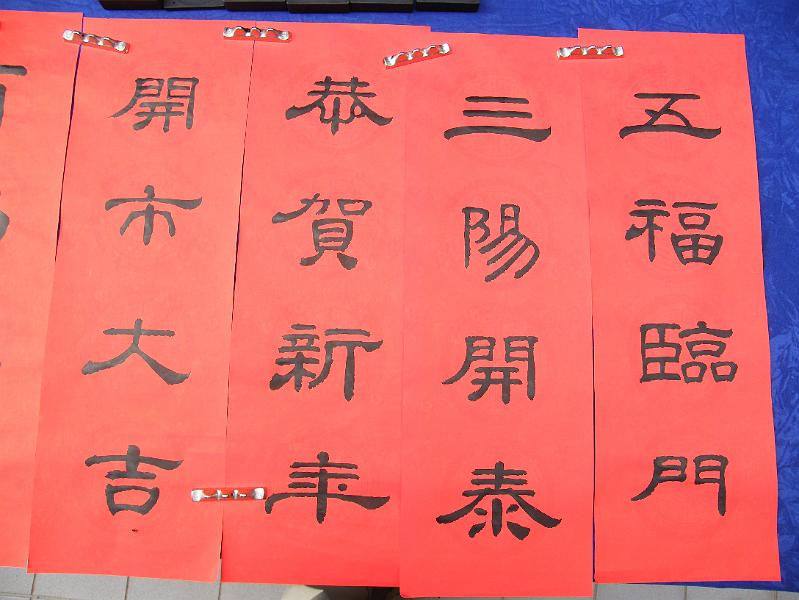 五福臨門
三陽開泰
恭賀新年
開市大吉